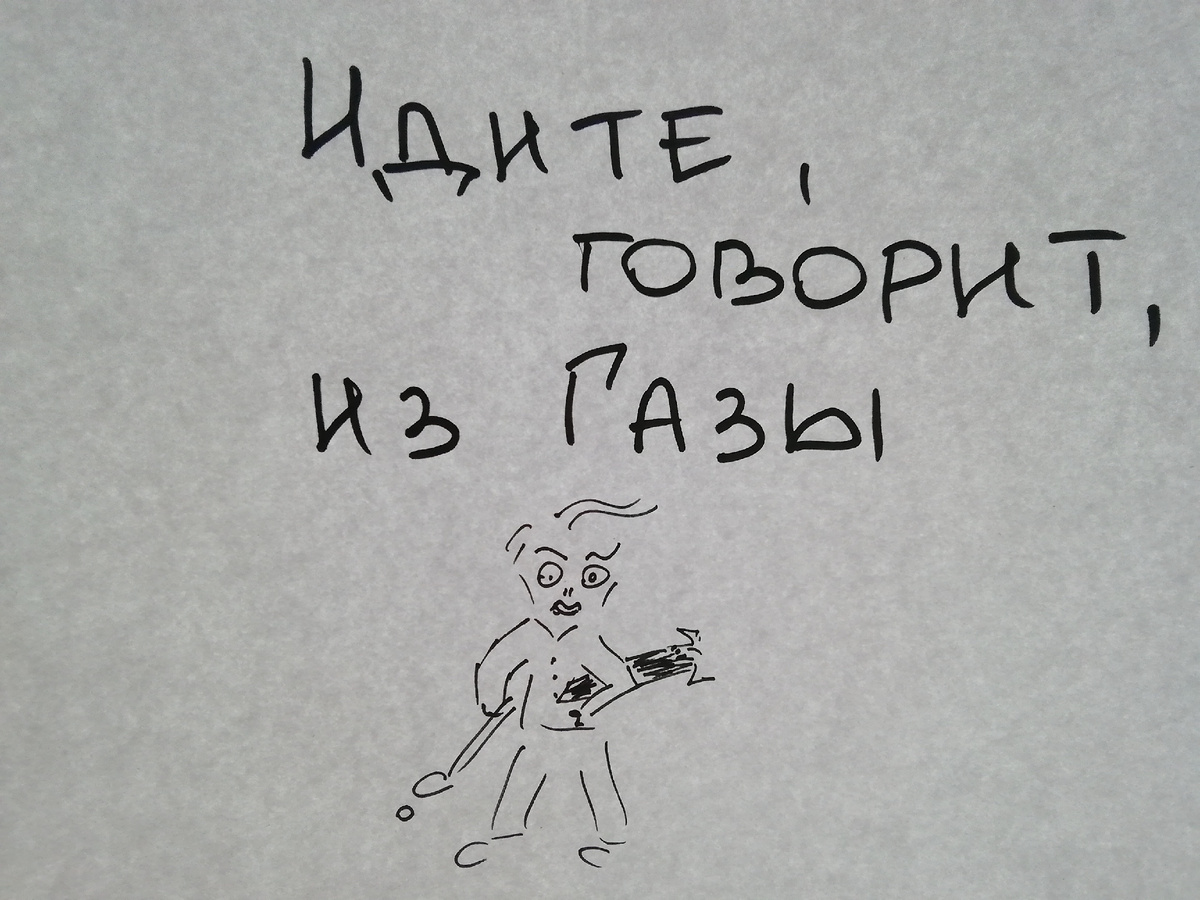 Идите,
говорит,
из Газы